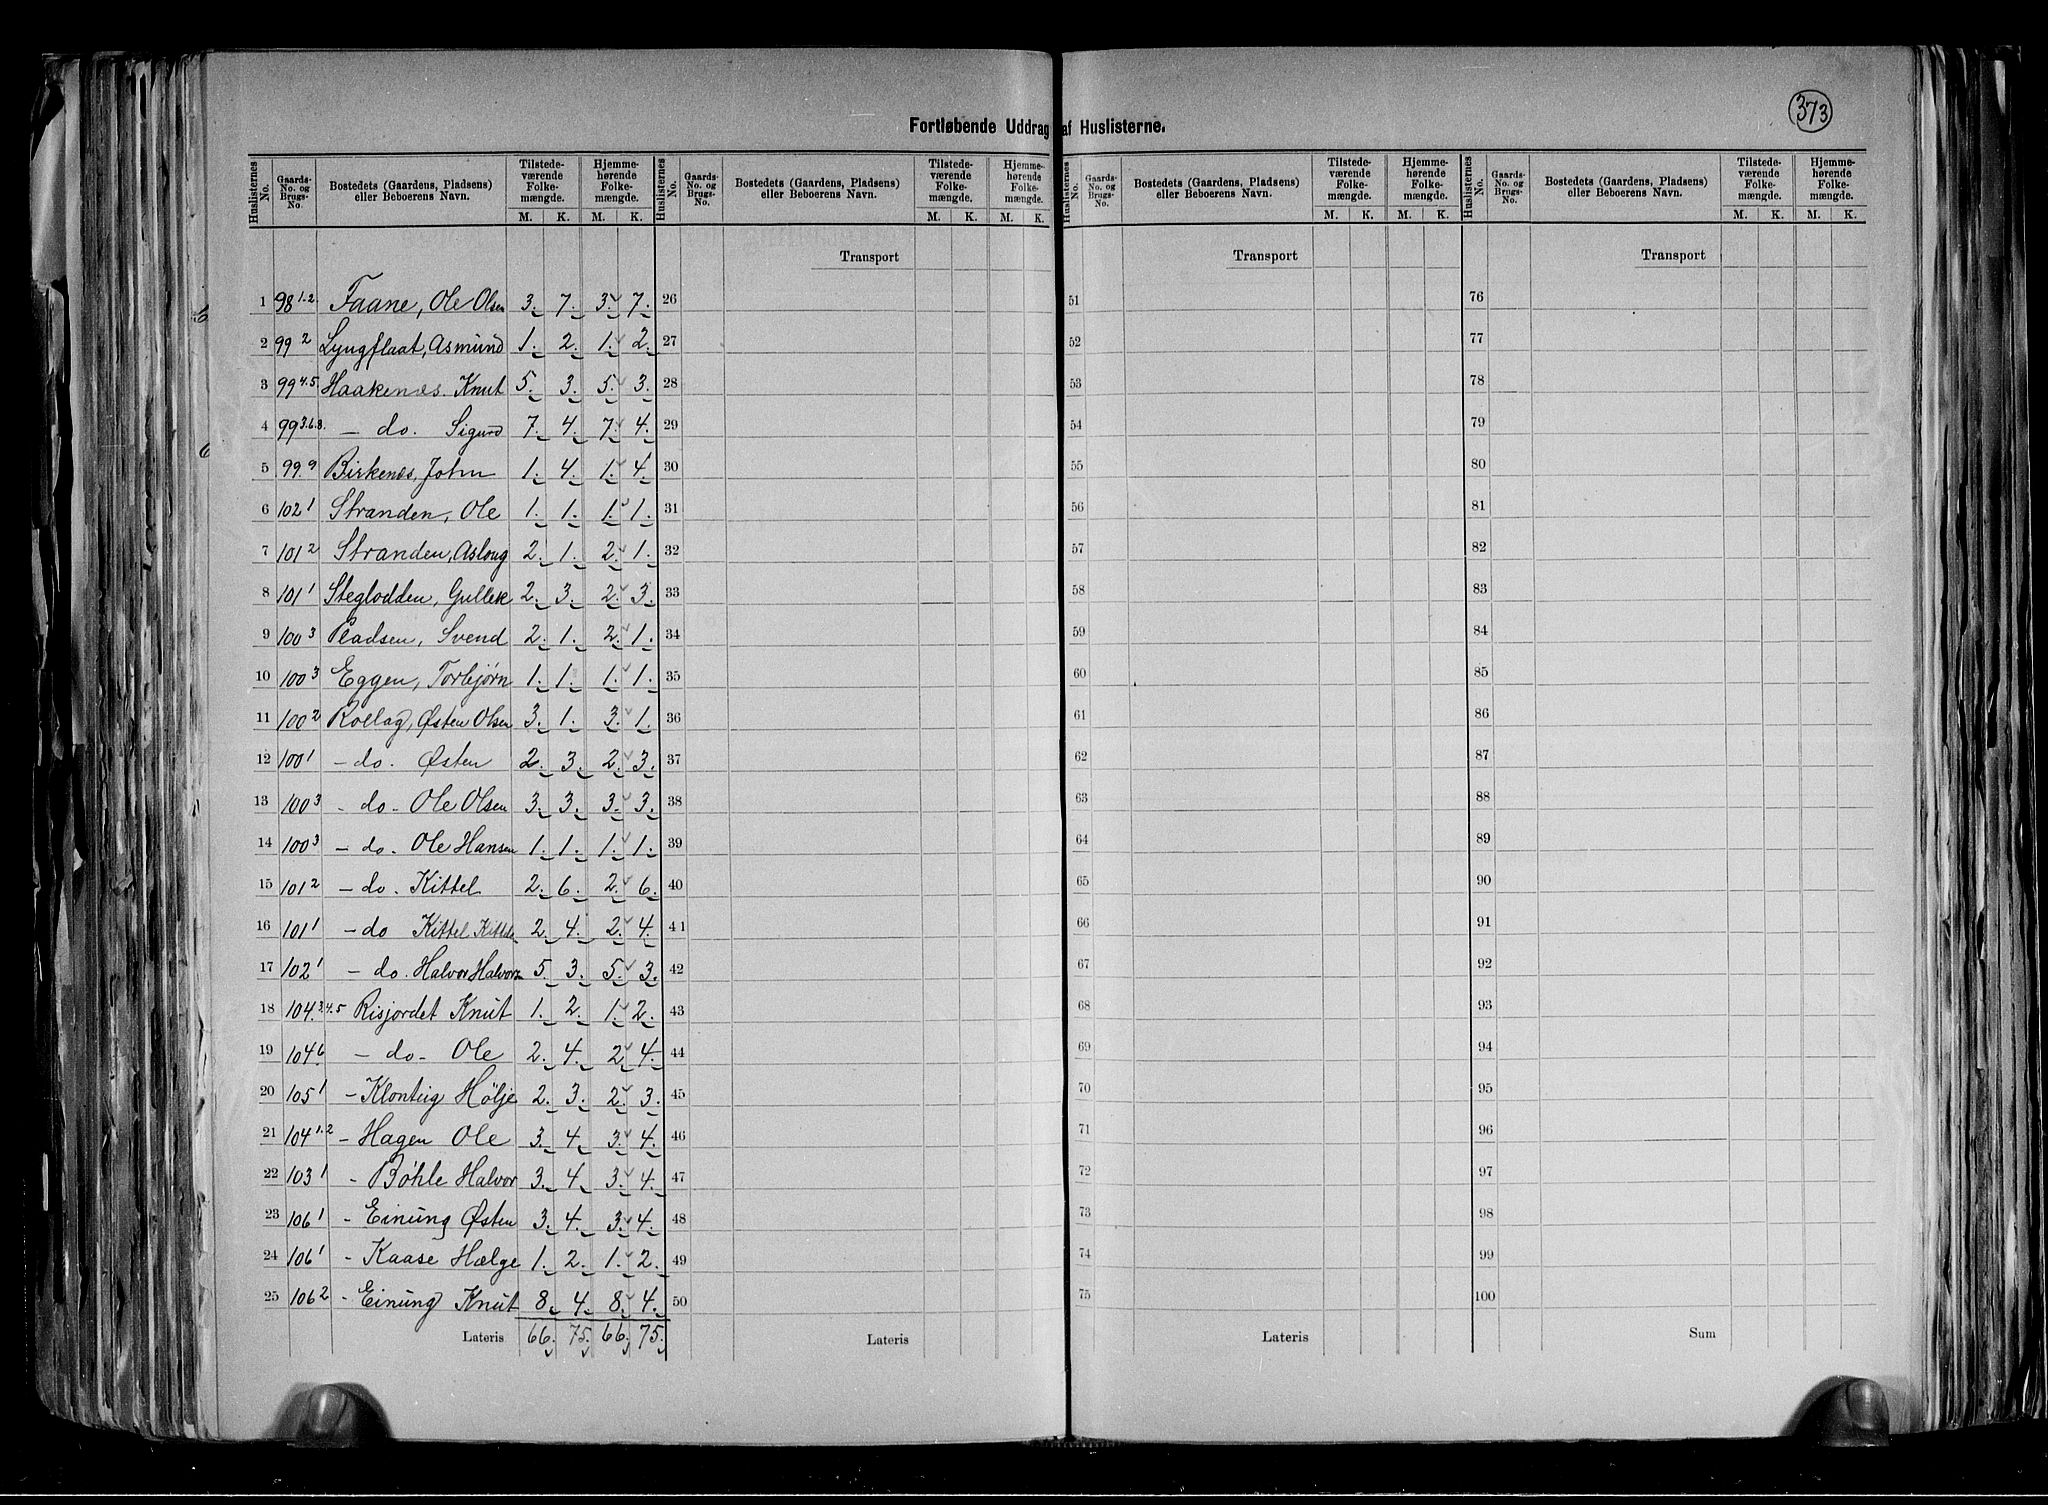 373
Fortløbende Uddrag af Huslisterne.
Huslisternes No. Gaards-No. og Brugs-No. Bostedets (Gaardens, Pladsens) eller Beboerens Navn. Tilstedeværende Folkemængde. M. K. Hjemmehørende Folkemængde. M. K.
Huslisternes No. Gaards-No. og Brugs-No. Bostedets (Gaardens, Pladsens) eller Beboerens Navn. Tilstedeværende Folkemængde. M. K. Hjemmehørende Folkemængde. M. K.
Huslisternes No. Gaards-No. og Brugs-No. Bostedets (Gaardens, Pladsens) eller Beboerens Navn. Tilstedeværende Folkemængde. M. K. Hjemmehørende Folkemængde. M. K.
Huslisternes No. Gaards-No. og Brugs-No. Bostedets (Gaardens, Pladsens) eller Beboerens Navn. Tilstedeværende Folkemængde. M. K. Hjemmehørende Folkemængde. M. K.
Transport Transport Transport
1 98 1.2. Faane, Ole Olsen 3. 7. 3. 7. 26 51 76
2 99 2 Lyngflaat, Asmund 1. 2. 1. 2. 27 52 77
3 99 4.5. Haakenæs. Knut 5. 3. 5. 3. 28 53 78
4 99 3.6.8. - do. Sigurd 7. 4. 7. 4. 29 54 79
5 99. 9 Birkenæs, John 1. 4. 1. 4. 30 55 80
6 102 1 Stranden, Ole 1. 1. 1. 1. 31 56 81
7 101 2 Stranden, Asloug 2. 1. 2. 1. 32 57 82
8 101 1 Steglodden, Gullek 2. 3. 2. 3. 33 58 83
9 100 3 Pladsen, Svend 2. 1. 2. 1. 34 59 84
10 100 3 Eggen, Torbjørn 1. 1. 1. 1. 35 60 85
11 100 2 Rollag, Østen Olsen 3. 1. 3. 1. 36 61 86
12 100 1 - do. Østen 2. 3. 2. 3. 37 62 87
13 100 3 - do - Ole Olsen 3. 3. 3. 3. 38 63 88
14 100 3 - do. Ole Hansen 1. 1. 1. 1. 39 64 89
15 101 2 - do. Kittel 2. 6. 2. 6. 40 65 90
16 101 1 - do Kittel 2. 4. 2. 4. 41 66 91
17 102 1 - do. Halvor Halvors 5. 3. 5. 3. 42 67 92
18 104. 3.4.5 Risjordet Knut 1. 2. 1. 2. 43 68 93
19 104 6 - do - Ole 2. 4. 2. 4. 44 69 94
20 105 1 - Hølje 2. 3. 2. 3. 45 70 95
21 104 1.2 - Hagen Ole 3. 4. 3. 4. 46 71 96
22 103 1 - Bøhle Halvor 3. 4. 3. 4. 47 72 97
23 106 1 - Einung Østen 3. 4. 3. 4. 48 73 98
24 106 1 - Kaase Hælge 1. 2. 1. 2. 49 74 99
25 106 2 - Einung Knut 8. 4. 8. 4. 50 75 100
Lateris 66. 75. 66. 75. Lateris Lateris Sum